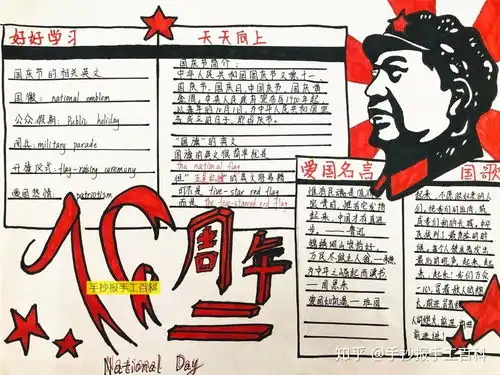 好好学习
国庆节的相关英文
国徽: national emblem
公众假期: Public holiday
阅兵: military parade
升旗仪式: flag-raising ceremony
爱国热情: patriotism
天天向上
国庆节简介:
中华人民共和国国庆又称十一、
国庆节、国庆日、中国国庆、国庆黄
金周。中央人民政府宣布自1950年起,
以每年的10月1日,为中华人民共和国宣
告成立的日子,即国庆节。
"国旗"的英文
国旗的英文很简单就是
the national flag
但"五星红旗"的英文容易错
可不是 five-star red flag
而是 the five-starred red flag
爱国名言
惟有民魂是值得
宝贵的,惟有它发扬
起来,中国才有真进
步。——鲁迅
为中华之崛起而读书
——周恩来
国歌
起来,不愿做奴隶的人
们,把我们的血肉,筑
成我们新的长城,中华
民族到了,最危险的时
候,每个人被迫着发出
最后的吼声,起来,起
来,起来!我们万众
一心,冒着敌人的炮
火,前进,冒着敌
人的炮火,前进,前进
前进,进!
76周年
National Day
手抄报手工百科
知乎 @手抄报手工百科